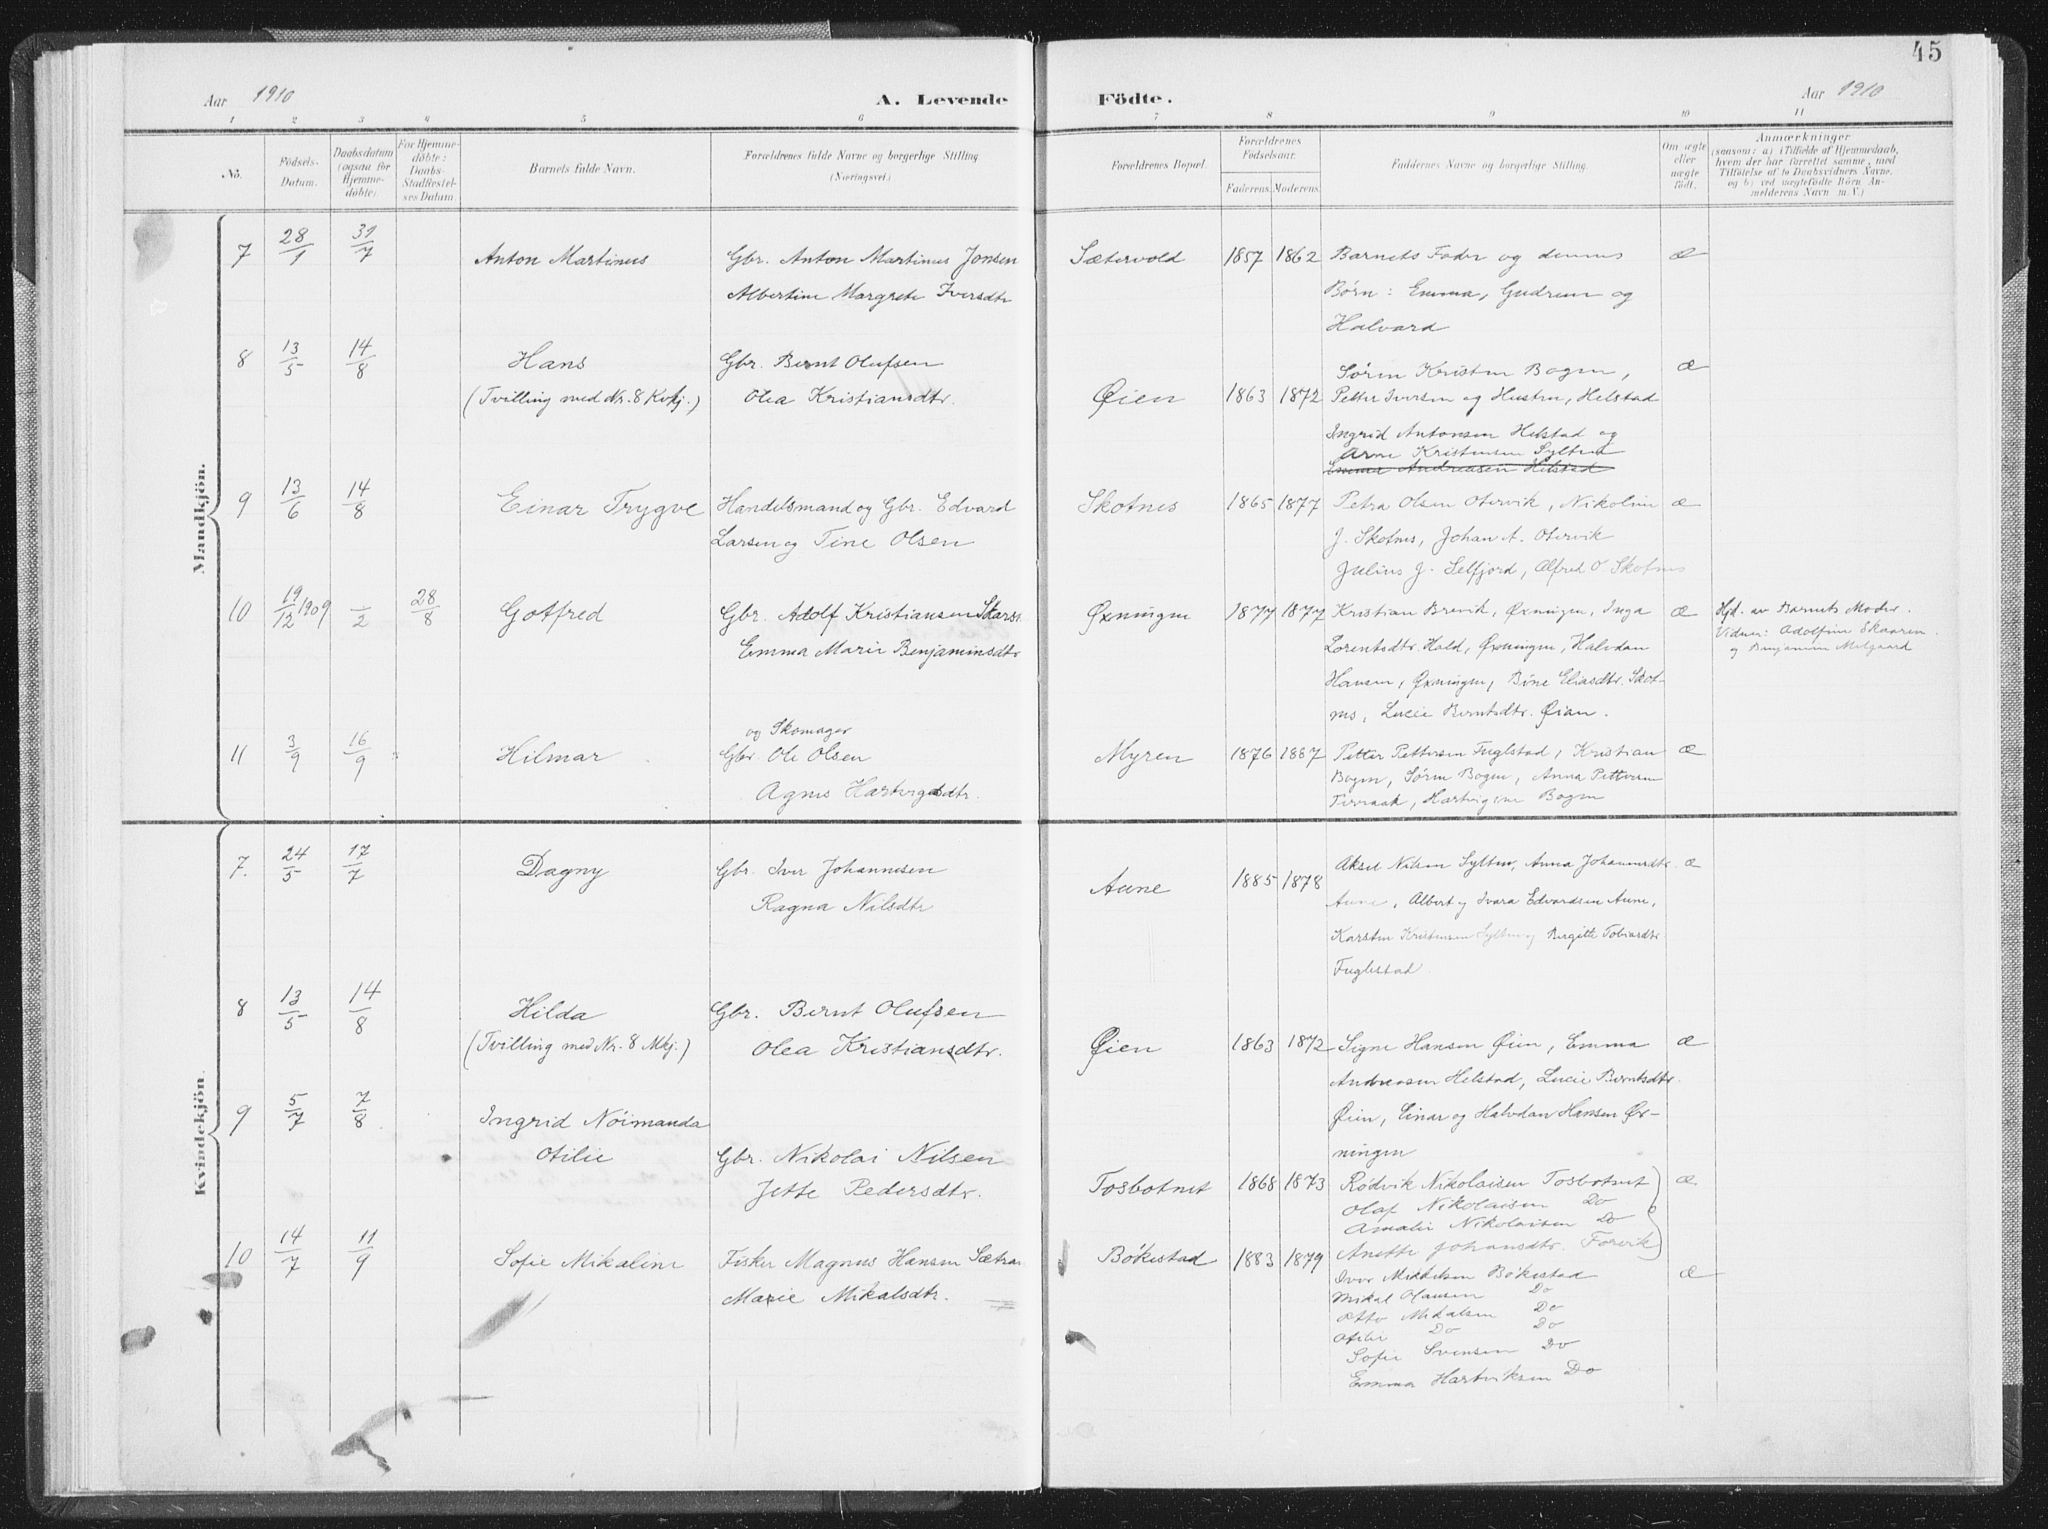 45
Aar 1910 A. Levende Födte. Aar 1910
1 2 3 4 5 6 7 8 9 10 11
No.
Födsels-
Datum.
Daabsdatum
(ogsaa for
Hjemme-
döbte)
For Hjemme-
döbte:
Daabs-
Stadfæstel-
ses Datum
Barnets fulde Navn.
Forældrenes fulde Navne og borgerlige Stilling
(Næringsvei.)
Forældrenes Bopæl.
Forældrenes
Födselsaar.
Faderens. Moderens.
Faddernes Navne og borgerlige Stilling.
Om ægte
eller
uægte
födt.
Anmærkninger
(saasom: a) i Tilfælde af Hjemmedaab,
hvem der har forrettet samme, med
Tilföielse af to Daabsvidners Navne,
og b) ved uægtefödte Börn An-
melderens Navn m. V.)
Mandkjön.
7 28/1 31/7 Anton Martinus Gbr. Anton Martinus Jonsen Sætervold 1857 1862 Barnets Fader og dennes æ
Albertine Margrete Iversdtr Børn: Emma, Gudrun og
Halvard
8 13/5 14/8 Hans Gbr. Bernt Olufsen Sørin Kristine Bogen, æ
(Tvilling med Nr. 8 Kvkj.) Olea Kristiansdtr. Øien 1863 1872 Petter Iversen og Hustru, Helstad
Ingrid Antonsen Helstad og
Arne Kristensen Sylten
Emma Andreasen Helstad
9 13/6 14/8 Einar Trygve Handelsmand og Gbr. Edvard Skotnes 1865 1877 Petra Olsen Otervik, Nikoline æ
Larsen og Tine Olsen J. Skotnes, Johan A. Otervik
Julius J. Selfjord, Alfred O Skotnes
10 19/12 1909 -/2 28/8 Gotfred Gbr. Adolf Kristiansen Øxningen 1877 1877 Kristian Brevik, Øxningen, Inga æ Hjd. av Barnets Moder.
Emma Marie Benjaminsdtr Lorentsdtr. Hald, Øxningen, Halvdan Vidner: Adolfine Skaaren
Hansen, Øxningen, Bine Eliasdtr. Skot- og Benjamin Melgaard
nes, Lucie Berntsdtr. Øien.
og Skomager
11 3/9 16/9 Hilmar Gbr. Ole Olsen Myren 1876 1887 Petter Pettersen Fuglstad, Kristian æ
Agnes Hartvigsdtr. Bogen, Sørin Bogen, Anna Pettersen
Terraak, Hartvigine Bogen
Kvindekjön.
7. 24/5 17/7 Dagny Gbr. Iver Johannesen Aune 1885 1878 Aksel Nilsen Sylten, Anna Johannesdtr. æ
Ragna Nilsdtr Aune, Albert og Ivara Edvardsen Aune,
Karsten Kristensen Sylten og Birgitte Tobiasdtr
Fuglestad
8 13/5 14/8 Hilda Gbr. Bernt Olufsen
(Tvilling med Nr. 8 Mkj.) Olea Kristiansdtr. Øien 1863 1872 Signe Hansen Øien, Emma æ
Andreasen Helstad, Lucie Berntsdtr.
Øien, Einar og Halvdan Hansen Øx-
ningen
9 5/7 7/8 Ingrid Nöimanda
Otilie Gbr. Nikolai Nilsen
Jette Pedersdtr. Tosbotnet 1868 1873 Rødvik Nikolaisen Tosbotnet æ
Olaf Nikolaisen Do
Amalie Nikolaisen Do
Anette Johansdtr. Forvik
10 14/7 11/9 Sofie Mikaline Fisker Magnus Hansen Sætran Bökestad 1883 1879 Iver Mikkelsen Bökestad æ
Marie Mikalsdtr. Mikal Olausen Do
Otto Mikalsen Do
Otilie Do Do
Sofie Svensen Do
Emma Hartviksen Do